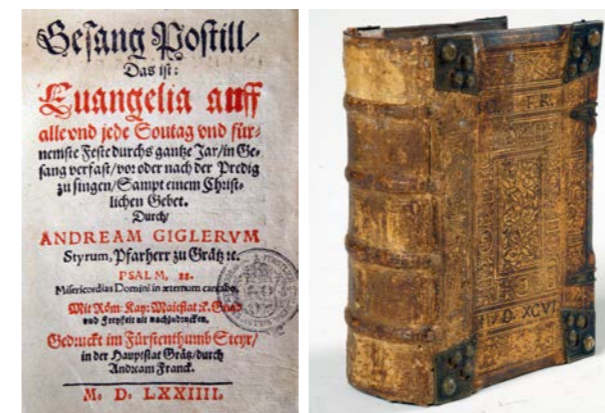 Gesang Postill/
Das ist:
Euangelia auff
alle vnd jede Sontag vnd für-
nemste Feste durchs gantze Jar/in Ge-
sang verfast/vor oder nach der Predig
zu singen/Sampt einem Christ-
lichen Gebet.
Durch/
ANDREAM GIGLERVM
Styrum, Pfarherr zu Grätz ꝛc.
PSALM.
Misericordias Domini in æternum cantabo.
Mit Röm: Kay: Maiestat ꝛc.
vnd Freyheit nit nachzudrucken.
Gedruckt im Fürstenthumb Steyr/
in der Hauptstat Grätz/durch
Andream Franck.
M. D. LXXIIII.
FR.
D. XCVI